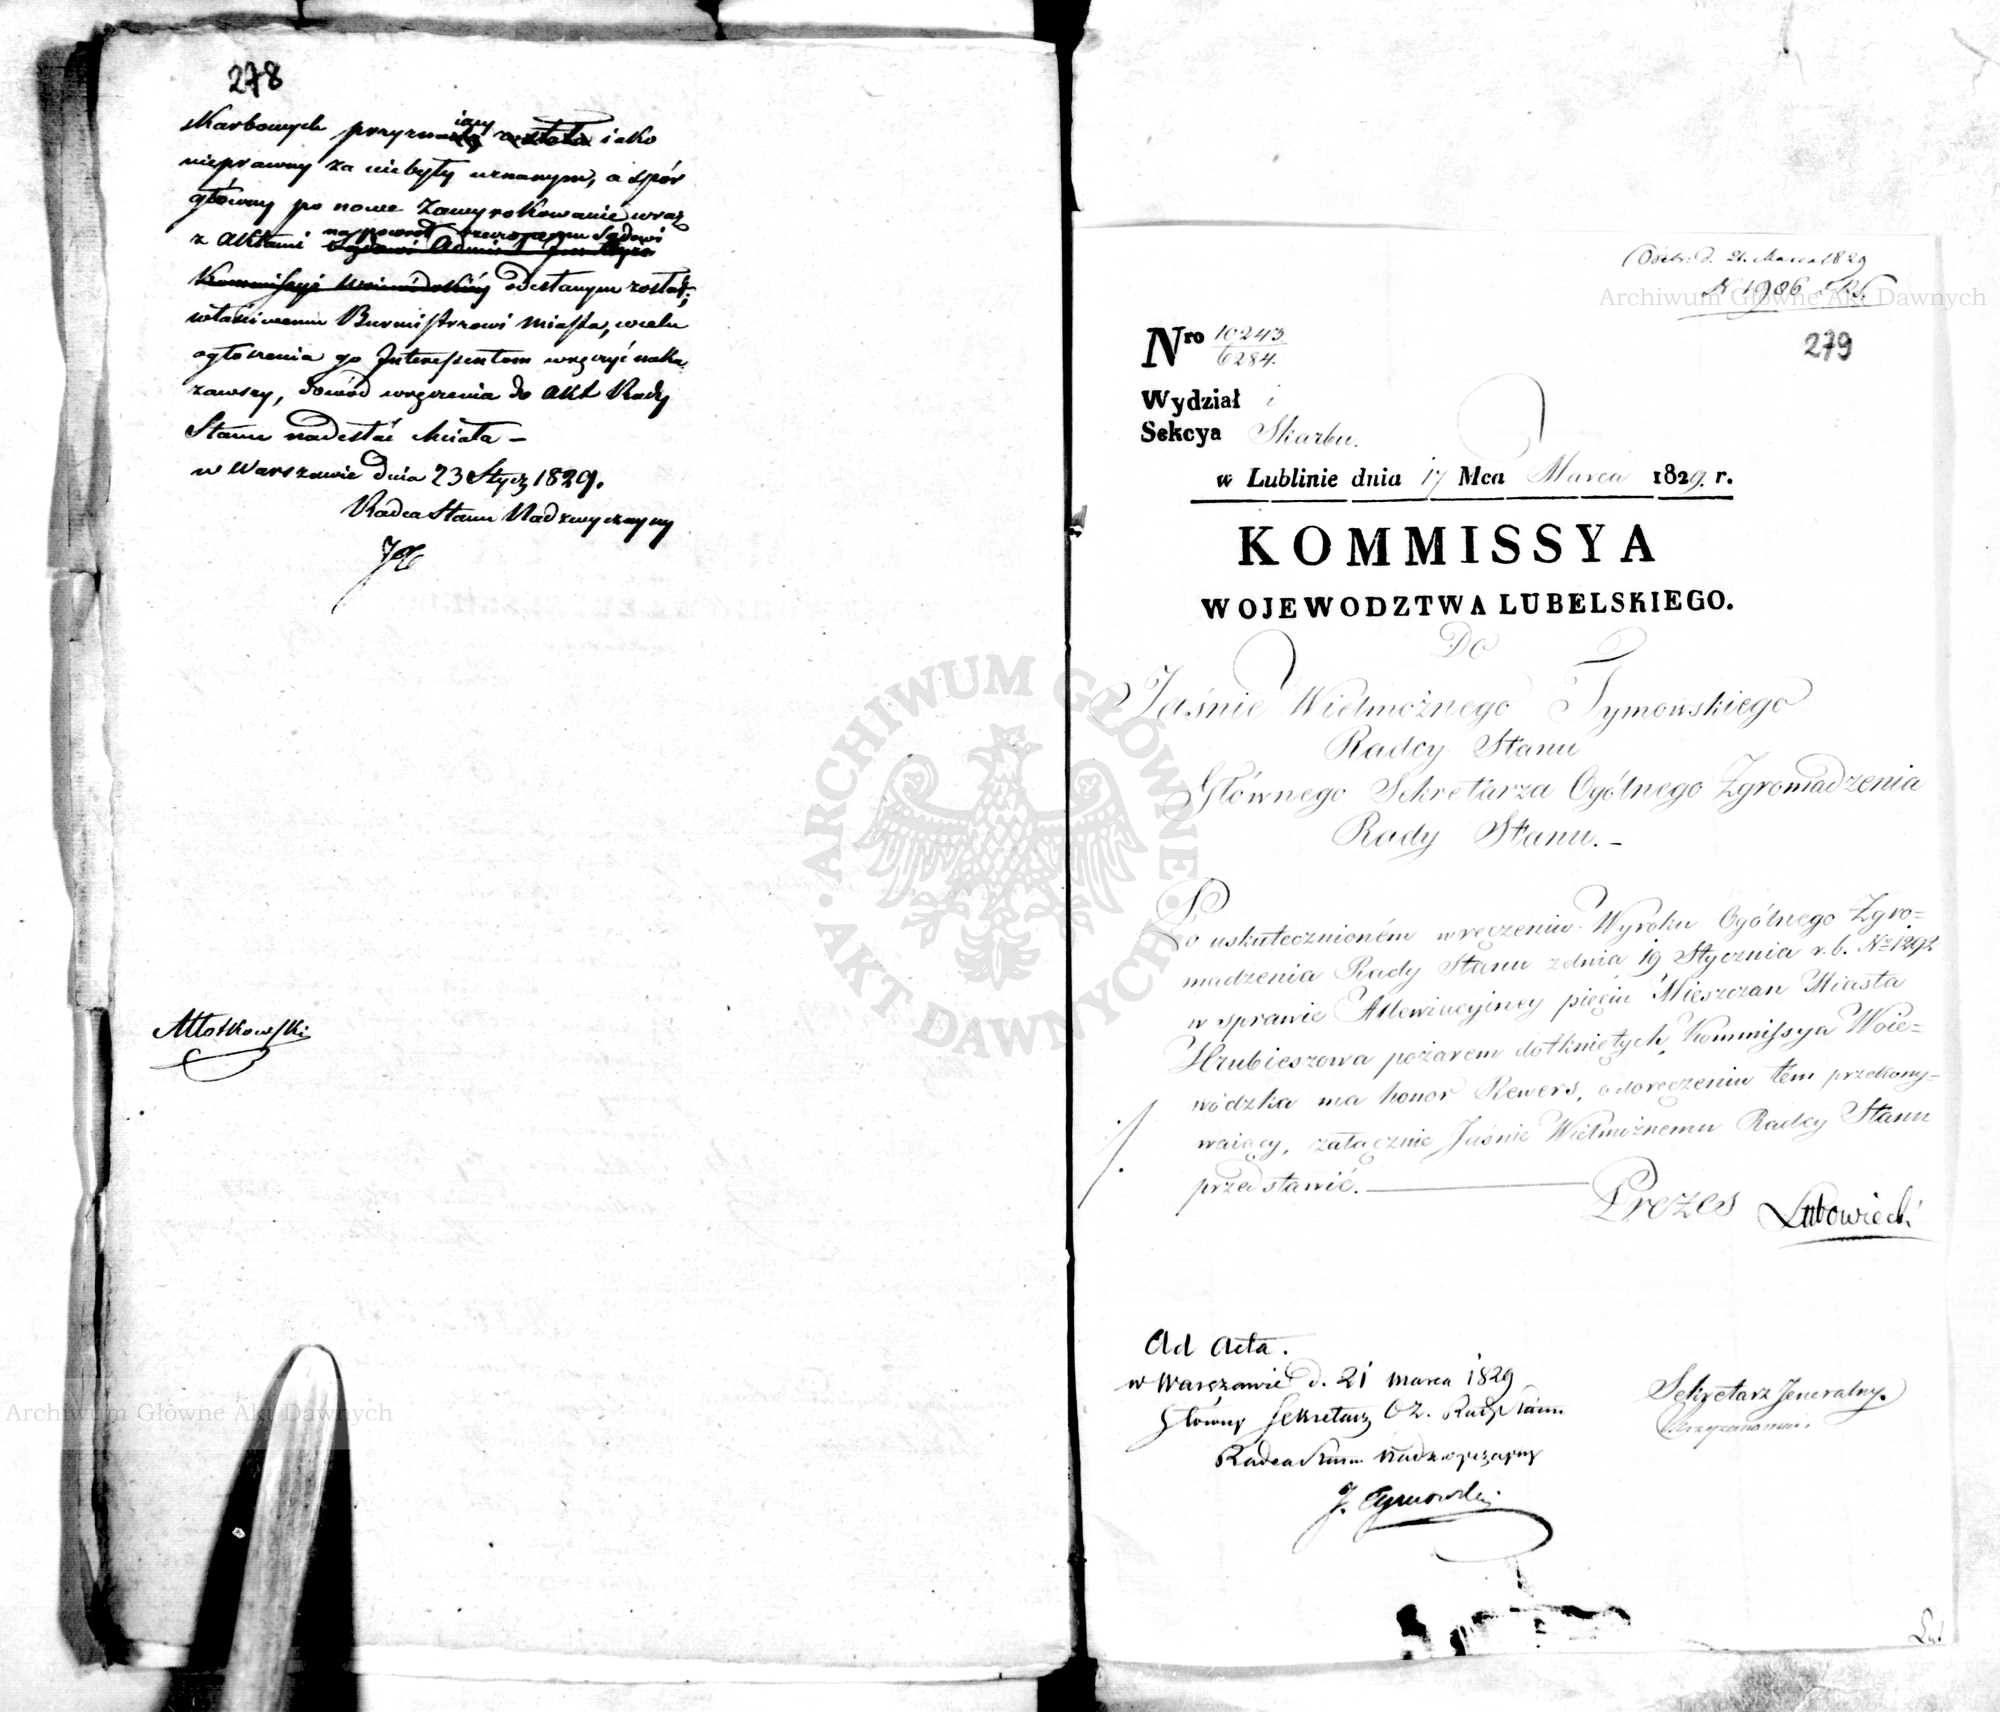 278
skarbowych przyznaiący iako
nieprawny za niebyły uznanym, a spór
główny po nowe zawyrokowanie wraz
z aktami na powrót Sądowi
odesłanym został;
właściwemu Burmistrzowi miasta, w celu
ogłoszenia go Interessentom wręczyć naka
zawszy, dowód wręczenia do akt Rady
Stanu nadesłać chciała –
w Warszawie dnia 23 Stycz 1829.
Radca Stanu Nadzwyczayny
Młotkowski
Odebr. d. 21. Marca 1829
N 1906
279
Nro 10243/6284.
Wydział i
Sekcya Skarbu.
w Lublinie dnia 17 Mca Marca 1829. r.
KOMMISSYA
WOJEWODZTWA LUBELSKIEGO.
Do
Jaśnie Wielmożnego Tymowskiego
Radcy Stanu
Głównego Sekretarza Ogólnego Zgromadzenia
Rady Stanu. –
Po uskutecznioném wręczeniu Wyroku Ogólnego Zgro=
madzenia Rady Stanu z dnia 19 Stycznia r. b. No 1292
w sprawie Allewiacyjney pięciu Mieszczan Miasta
Hrubieszowa pożarem dotkniętych, Kommissya Woie=
wódzka ma honor Rewers, o doręczeniu tém przekony=
waiący, załącznie Jaśnie Wielmożnemu Radcy Stanu
przedstawić.
Prezes Lubowiecki
Ad Acta.
w Warszawie d. 21 marca 1829
Główny Sekretarz O Z. Rady Stanu
Radca Stanu Nadzwyczayny
J. Tymowski
Sekretarz Jeneralny.
Archiwum Główne Akt Dawnych
ARCHIWUM GŁÓWNE AKT DAWNYCH
Archiwum Główne Akt Dawnych